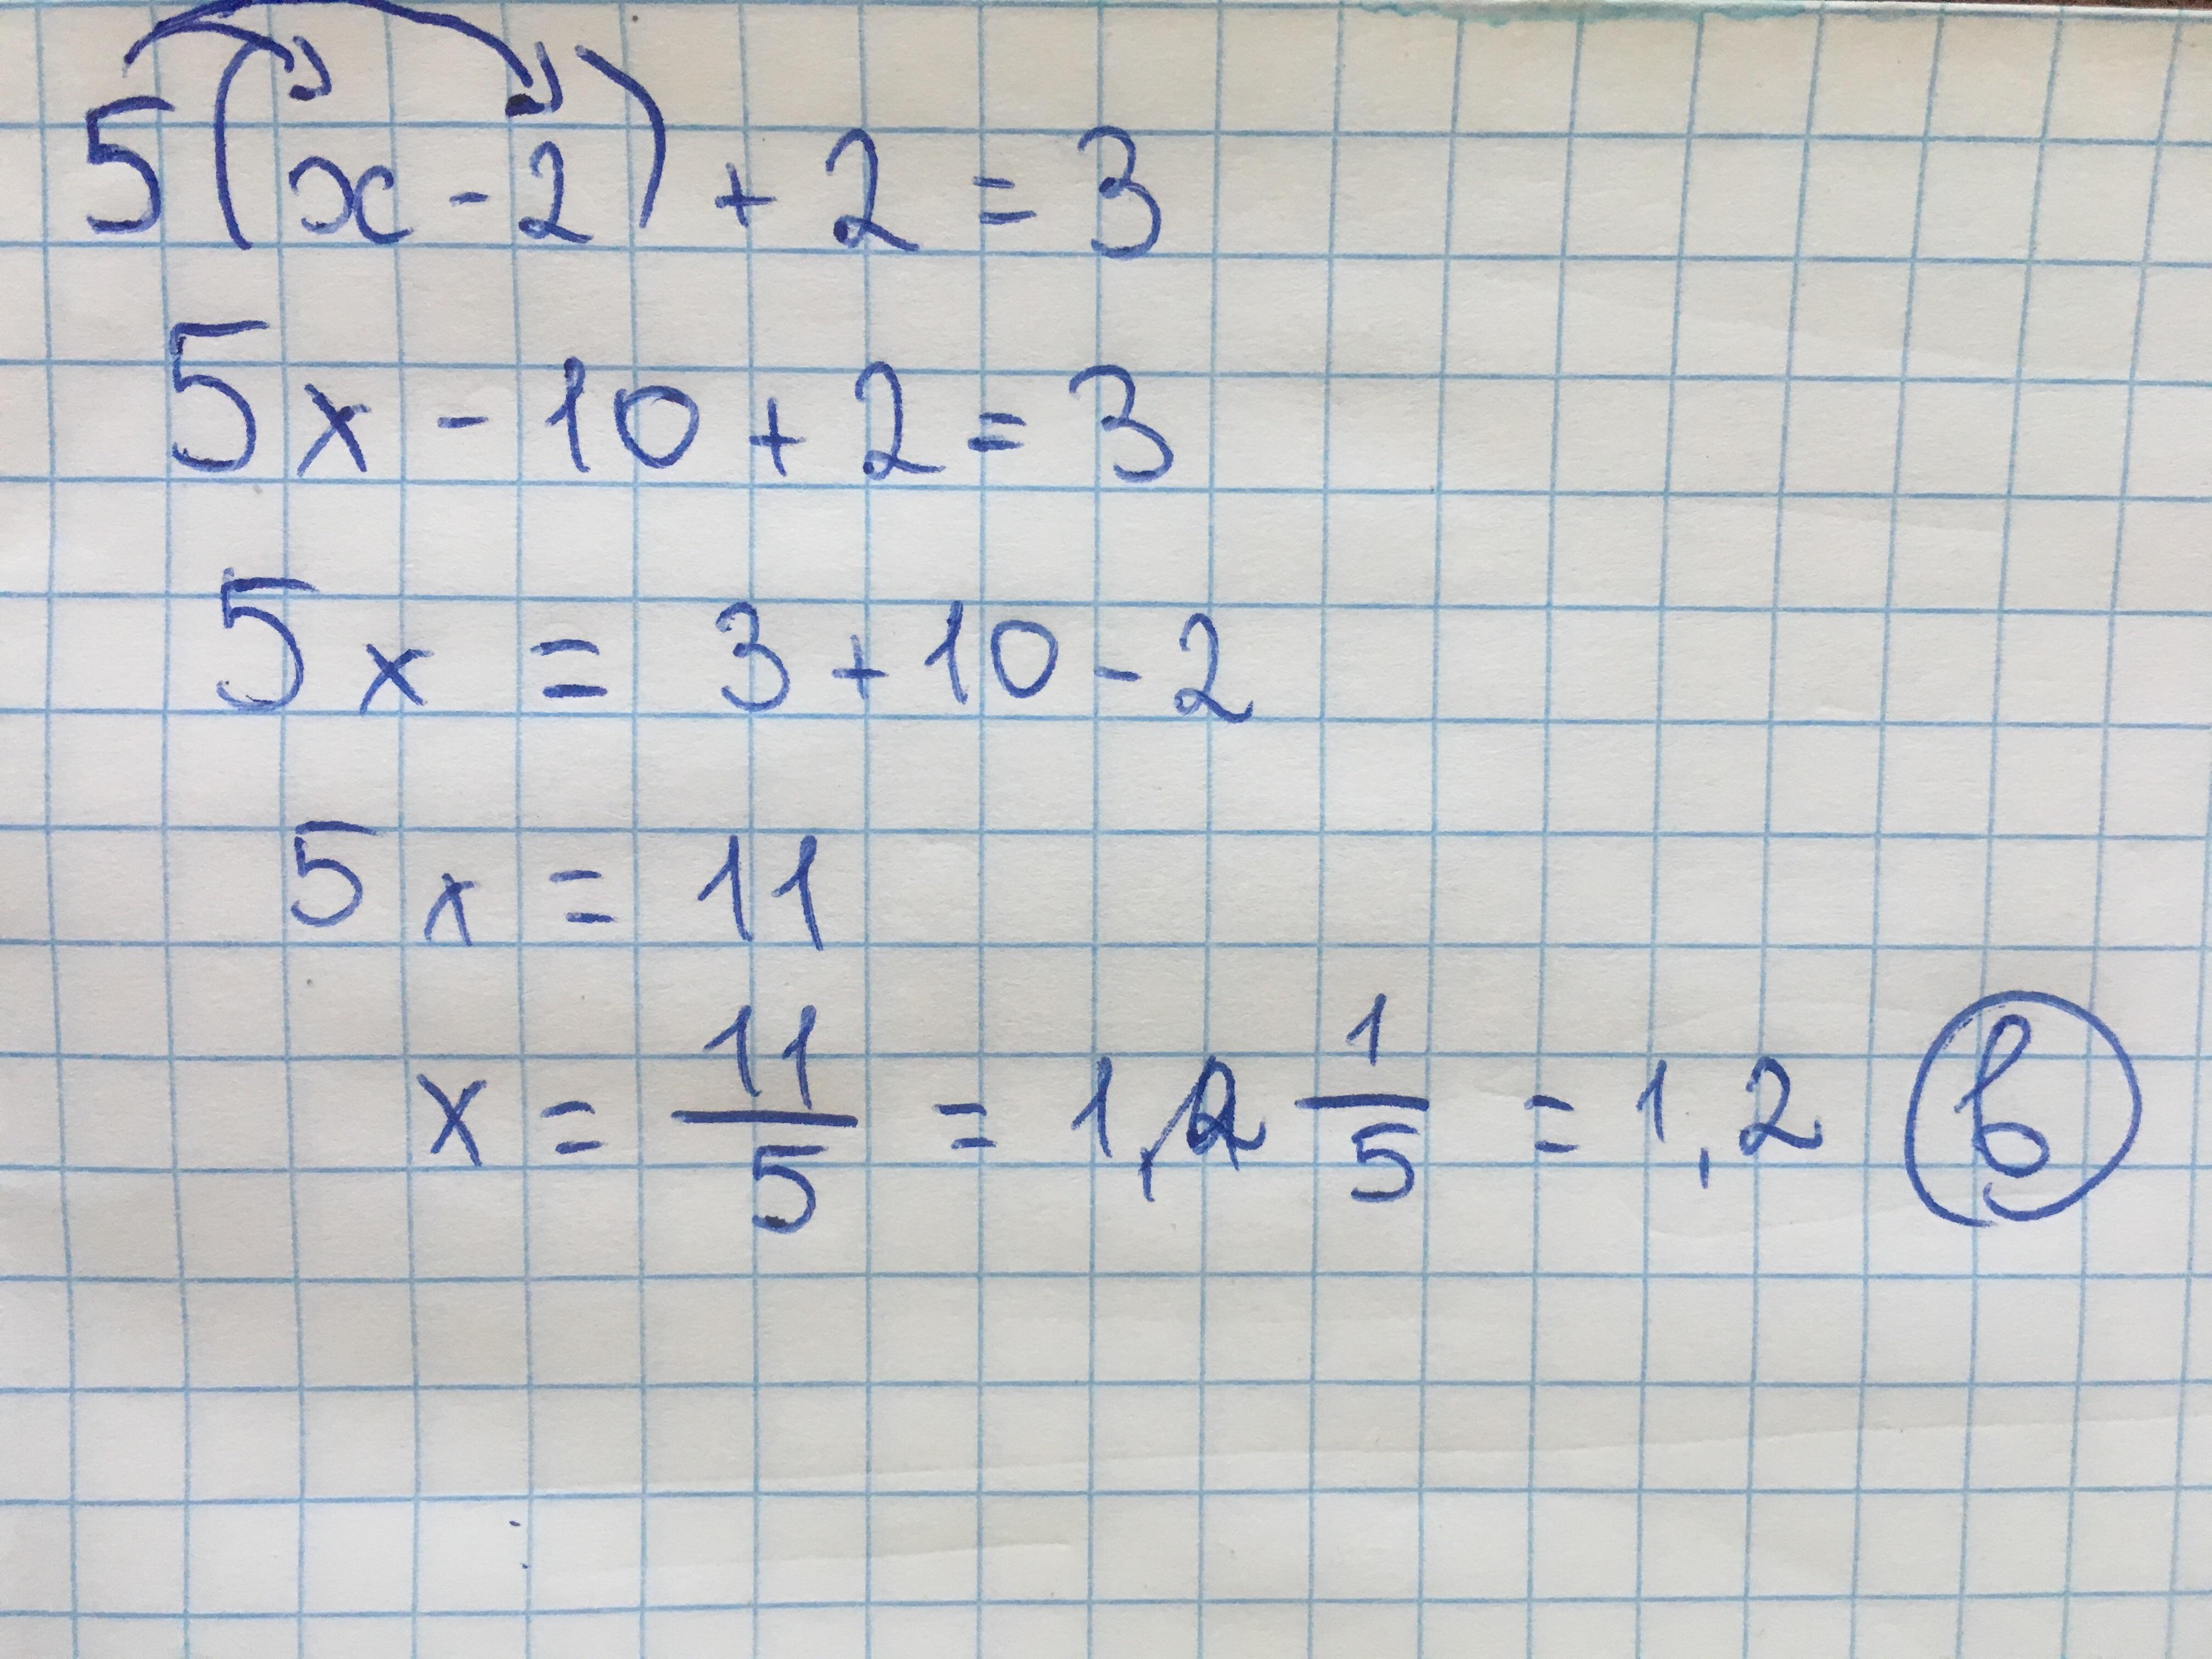 5(x-2)+2=3
5x-10+2=3
5x = 3+10-2
5x = 11
x = 11/5 = 1, 2 1/5 = 1,2 b